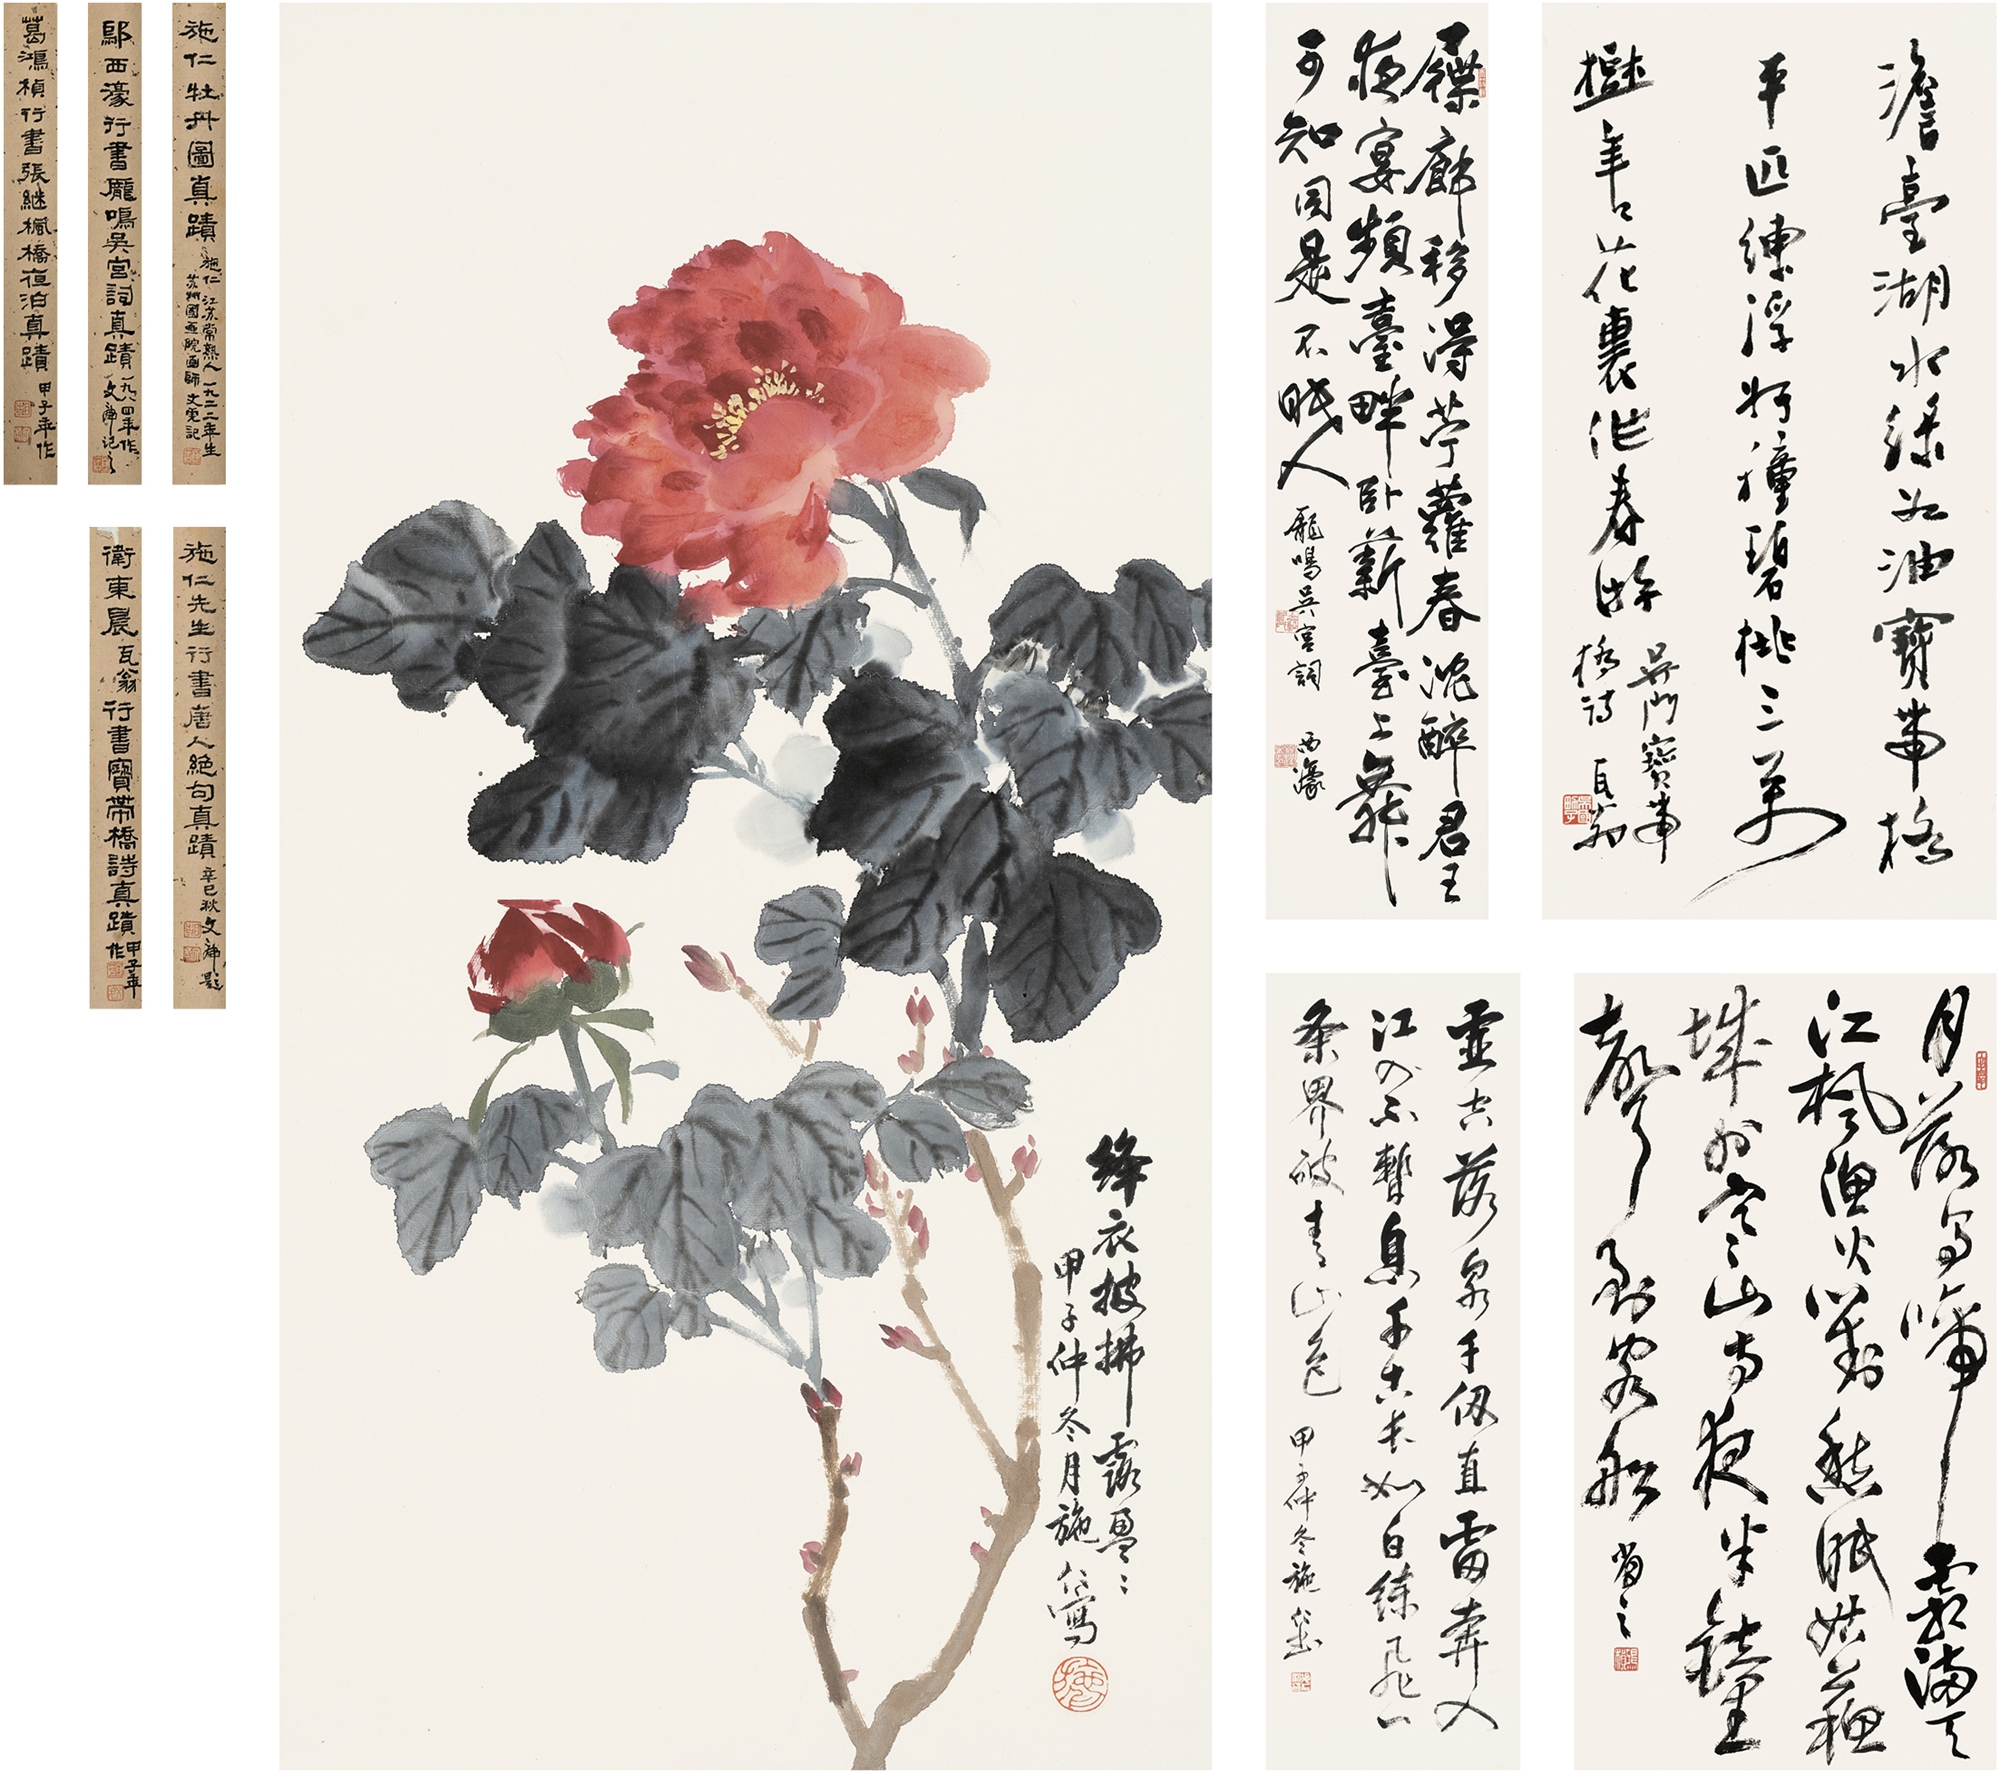 施仁牡丹圖真蹟
施仁 江苏常熟人 一九二二年生
苏州國画院画師 文霓記
鄔西濠行書龐鳴吳宮詞真蹟
一九八四年作
葛鴻楨行書張継楓橋夜泊真蹟 甲子年作
施仁先生行書唐人絶句真蹟 辛巳秋
衛東晨瓦翁行書寶带橋詩真蹟 甲子年作
絳衣披拂露盈〻
甲子仲冬月施仁寫
屧廊移得苧蘿春沈醉君王
夜宴頻臺畔臥薪臺上舞
可知同是不眠人
龐鳴吳宮詞 西濠
澹臺湖水綠如油寶带橋
平匹練浮好種碧桃三万
樹年〻花裏作春游
吳門寶带
橋詩 瓦翁
虚空落泉千仞直雷奔入
江不暫息千古長如白練飛一
条界破青山色
甲子仲冬施仁書
月落烏啼霜满天
江楓漁火對愁眠姑蘇
城外寒山寺夜半鐘
聲到客船